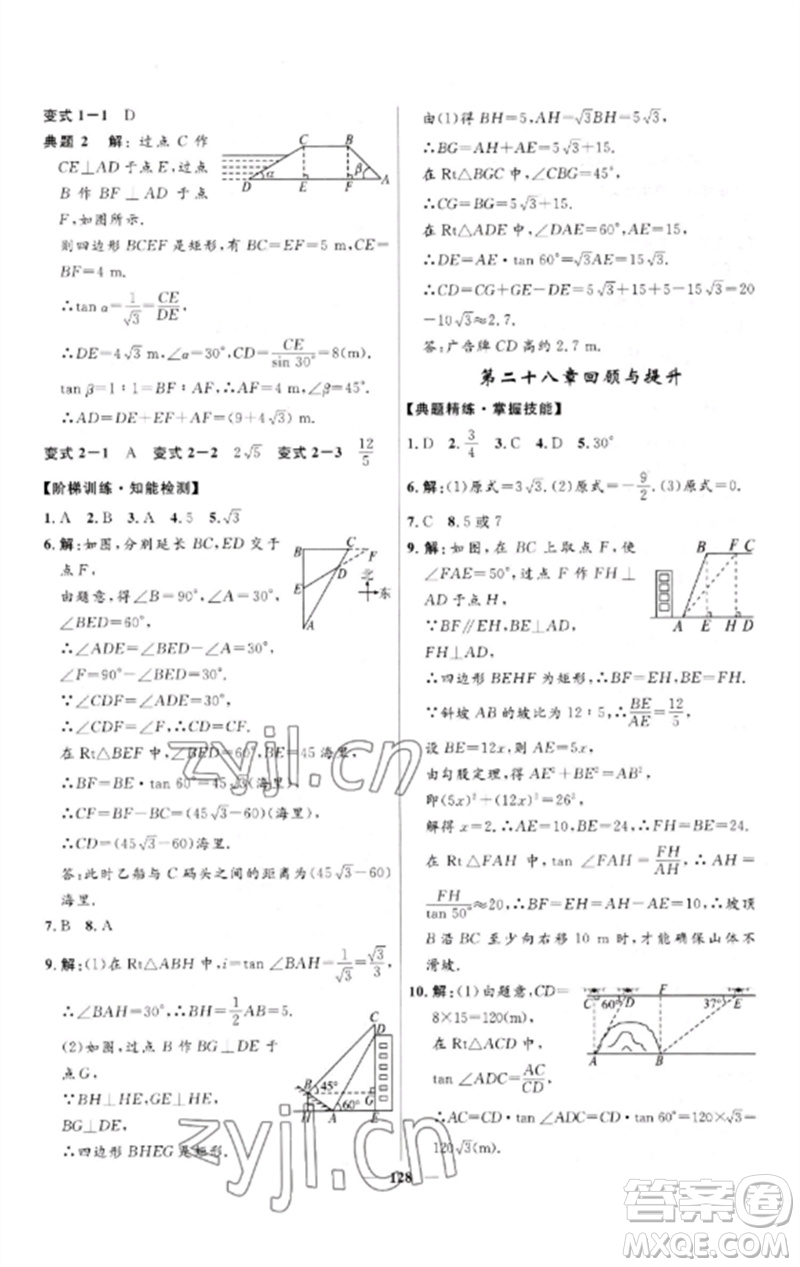 变式1-1 D
典题2 解:过点C作
CE⊥AD于点E,过点
B作BF⊥AD于点
F,如图所示.
则四边形BCEF是矩形,有BC=EF=5 m,CE=
BF=4 m.
∴tan α=1/√3=CE/DE,
∴DE=4√3 m,∠α=30°,CD=CE/sin 30°=8(m).
tan β=1:1=BF:AF,
∴AD=DE+EF+AF=(9+4√3)m.
变式2-1 A 变式2-2 2√5 变式2-3 12/5
【阶梯训练·知能检测】
1.A 2.B 3.A 4.5 5.√3
6.解:如图,分别延长BC,ED交于
点F,
由题意,得∠B=90°,∠A=30°,
∠BED=60°,
∴∠ADE=∠BED-∠A=30°,
∠F=90°-∠BED=30°.
∵∠CDF=∠ADE=30°,
∴∠CDF=∠F,∴CD=CF.
在Rt△BEF中,∠BED=60°,BE=45海里,
∴BF=BE·tan 60°=45√3(海里),
∴CF=BF-BC=(45√3-60)(海里),
∴CD=(45√3-60)(海里).
答:此时乙船与C码头之间的距离为(45√3-60)
海里.
7.B 8.A
9.解:(1)在Rt△ABH中,i=tan ∠BAH=1/√3=√3/3,
∴∠BAH=30°,∴BH=1/2 AB=5.
(2)如图,过点B作BG⊥DE于
点G,
∵BH⊥HE,GE⊥HE,
BG⊥DE,
∴四边形BHEG是矩形.
C B α β D E F A
C F D 北 东 E A
C D B 45° G 60° H A E
由(1)得BH=5,AH=√3BH=5√3,
∴BG=AH+AE=5√3+15.
在Rt△BGC中,∠CBG=45°,
∴CG=BG=5√3+15.
在Rt△ADE中,∠DAE=60°,AE=15,
∴DE=AE·tan 60°=√3AE=15√3.
∴CD=CG+GE-DE=5√3+15+5-15√3=20
-10√3≈2.7.
答:广告牌CD高约2.7 m.
第二十八章回顾与提升
【典题精练·掌握技能】
1.D 2.3/4 3.C 4.D 5.30°
6.解:(1)原式=3√3.(2)原式=-9/2.(3)原式=0.
7.C 8.5或7
9.解:如图,在BC上取点F,使
∠FAE=50°,过点F作FH⊥
AD于点H,
∵BF∥EH,BE⊥AD,
FH⊥AD,
∴四边形BEHF为矩形,
∴BF=EH,BE=FH.
∵斜坡AB的坡比为12:5,∴BE/AE=12/5,
设BE=12x,则AE=5x,
由勾股定理,得AE²+BE²=AB²,
即(5x)²+(12x)²=26²,
解得x=2.∴AE=10,∴FH=BE=24.
在Rt△FAH中,tan ∠FAH=FH/AH,∴AH=
FH/tan 50°≈20,∴BF=EH=AH-AE=10,∴坡顶
B沿BC至少向右移10 m时,才能确保山体不
滑坡.
10.解:(1)由题意,CD=
8×15=120(m),
在Rt△ACD中,
tan ∠ADC=AC/CD,
∴AC=CD·tan ∠ADC=CD·tan 60°=120×√3=
120√3(m).
B F C A E H D
C 60° D F 37° E A B
128
zyjl.cn
zyjl.cn
答案圈
MXQE.COM